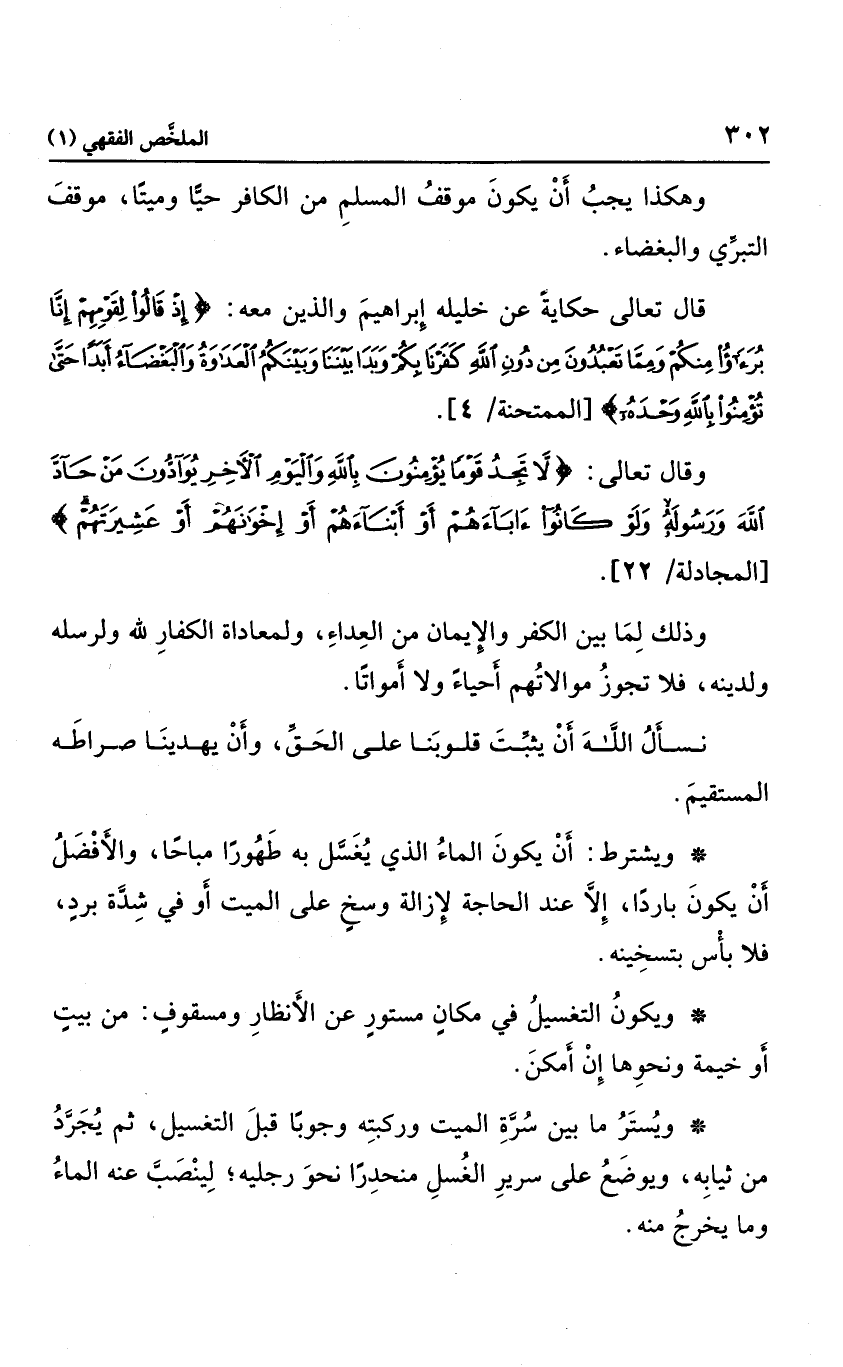 ٣٠٢ الملخَّص الفقهي (١)
وهكذا يجبُ أَنْ يكونَ موقفُ المسلمِ من الكافر حيًّا وميتًا، موقفَ
التبرِّي والبغضاء.
قال تعالى حكايةً عن خليله إِبراهيمَ والذين معه: ﴿إِذْ قَالُواْ لِقَوْمِهِمْ إِنَّا
بُرَءَٰٓؤُاْ مِنكُمْ وَمِمَّا تَعْبُدُونَ مِن دُونِ ٱللَّهِ كَفَرْنَا بِكُمْ وَبَدَا بَيْنَنَا وَبَيْنَكُمُ ٱلْعَدَٰوَةُ وَٱلْبَغْضَآءُ أَبَدًا حَتَّىٰ
تُؤْمِنُواْ بِٱللَّهِ وَحْدَهُۥٓ﴾ [الممتحنة/ ٤].
وقال تعالى: ﴿لَّا تَجِدُ قَوْمًا يُؤْمِنُونَ بِٱللَّهِ وَٱلْيَوْمِ ٱلْأَخِرِ يُوَآدُّونَ مَنْ حَآدَّ
ٱللَّهَ وَرَسُولَهُۥ وَلَوْ كَانُوٓاْ ءَابَآءَهُمْ أَوْ أَبْنَآءَهُمْ أَوْ إِخْوَٰنَهُمْ أَوْ عَشِيرَتَهُمْۚ﴾
[المجادلة/ ٢٢].
وذلك لِمَا بين الكفر والإِيمان من العِداءِ، ولمعاداة الكفارِ لله ولرسله
ولدينه، فلا تجوزُ موالاتُهم أَحياءً ولا أَمواتًا.
نسأَلُ اللَّهَ أَنْ يثبِّتَ قلوبَنا على الحَقِّ، وأَنْ يهدينَا صراطَه
المستقيمَ.
* ويشترط: أَنْ يكونَ الماءُ الذي يُغَسَّل به طَهُورًا مباحًا، والأَفْضَلُ
أَنْ يكونَ باردًا، إِلاَّ عند الحاجة لإِزالة وسخٍ على الميت أَو في شِدَّة بردٍ،
فلا بأْس بتسخينه.
* ويكونُ التغسيلُ في مكانٍ مستورٍ عن الأَنظارِ ومسقوفٍ: من بيتٍ
أَو خيمة ونحوِها إِنْ أَمكنَ.
* ويُستَرُ ما بين سُرَّةِ الميت وركبتِه وجوبًا قبلَ التغسيل، ثم يُجَرَّدُ
من ثيابِه، ويوضَعُ على سريرِ الغُسلِ منحدِرًا نحوَ رجليه؛ لِينْصَبَّ عنه الماءُ
وما يخرجُ منه.